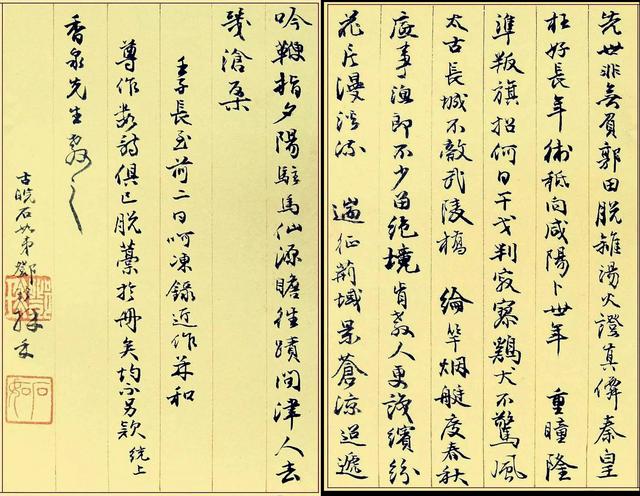 先世非無負郭田脫離湯火證真僊秦皇
枉好長年術秪向咸陽卜世年　重瞳隆
準叛旗招何日干戈判寂寥鷄犬不驚風
太古長城不敵武陵橋　綸竿烟艇度春秋
底事漁郎不少留絕境肯教人更識繽紛
花片漫溪流　遄征荊域景蒼涼迢遞
吟鞭指夕陽駐馬仙源瞻往蹟問津人去
幾滄桑
壬子長至前二日呵凍錄近作并和
尊作數詩俱已脫藁於冊矣均不另欵 統上
香泉先生教之
古皖石如弟鄧
石如